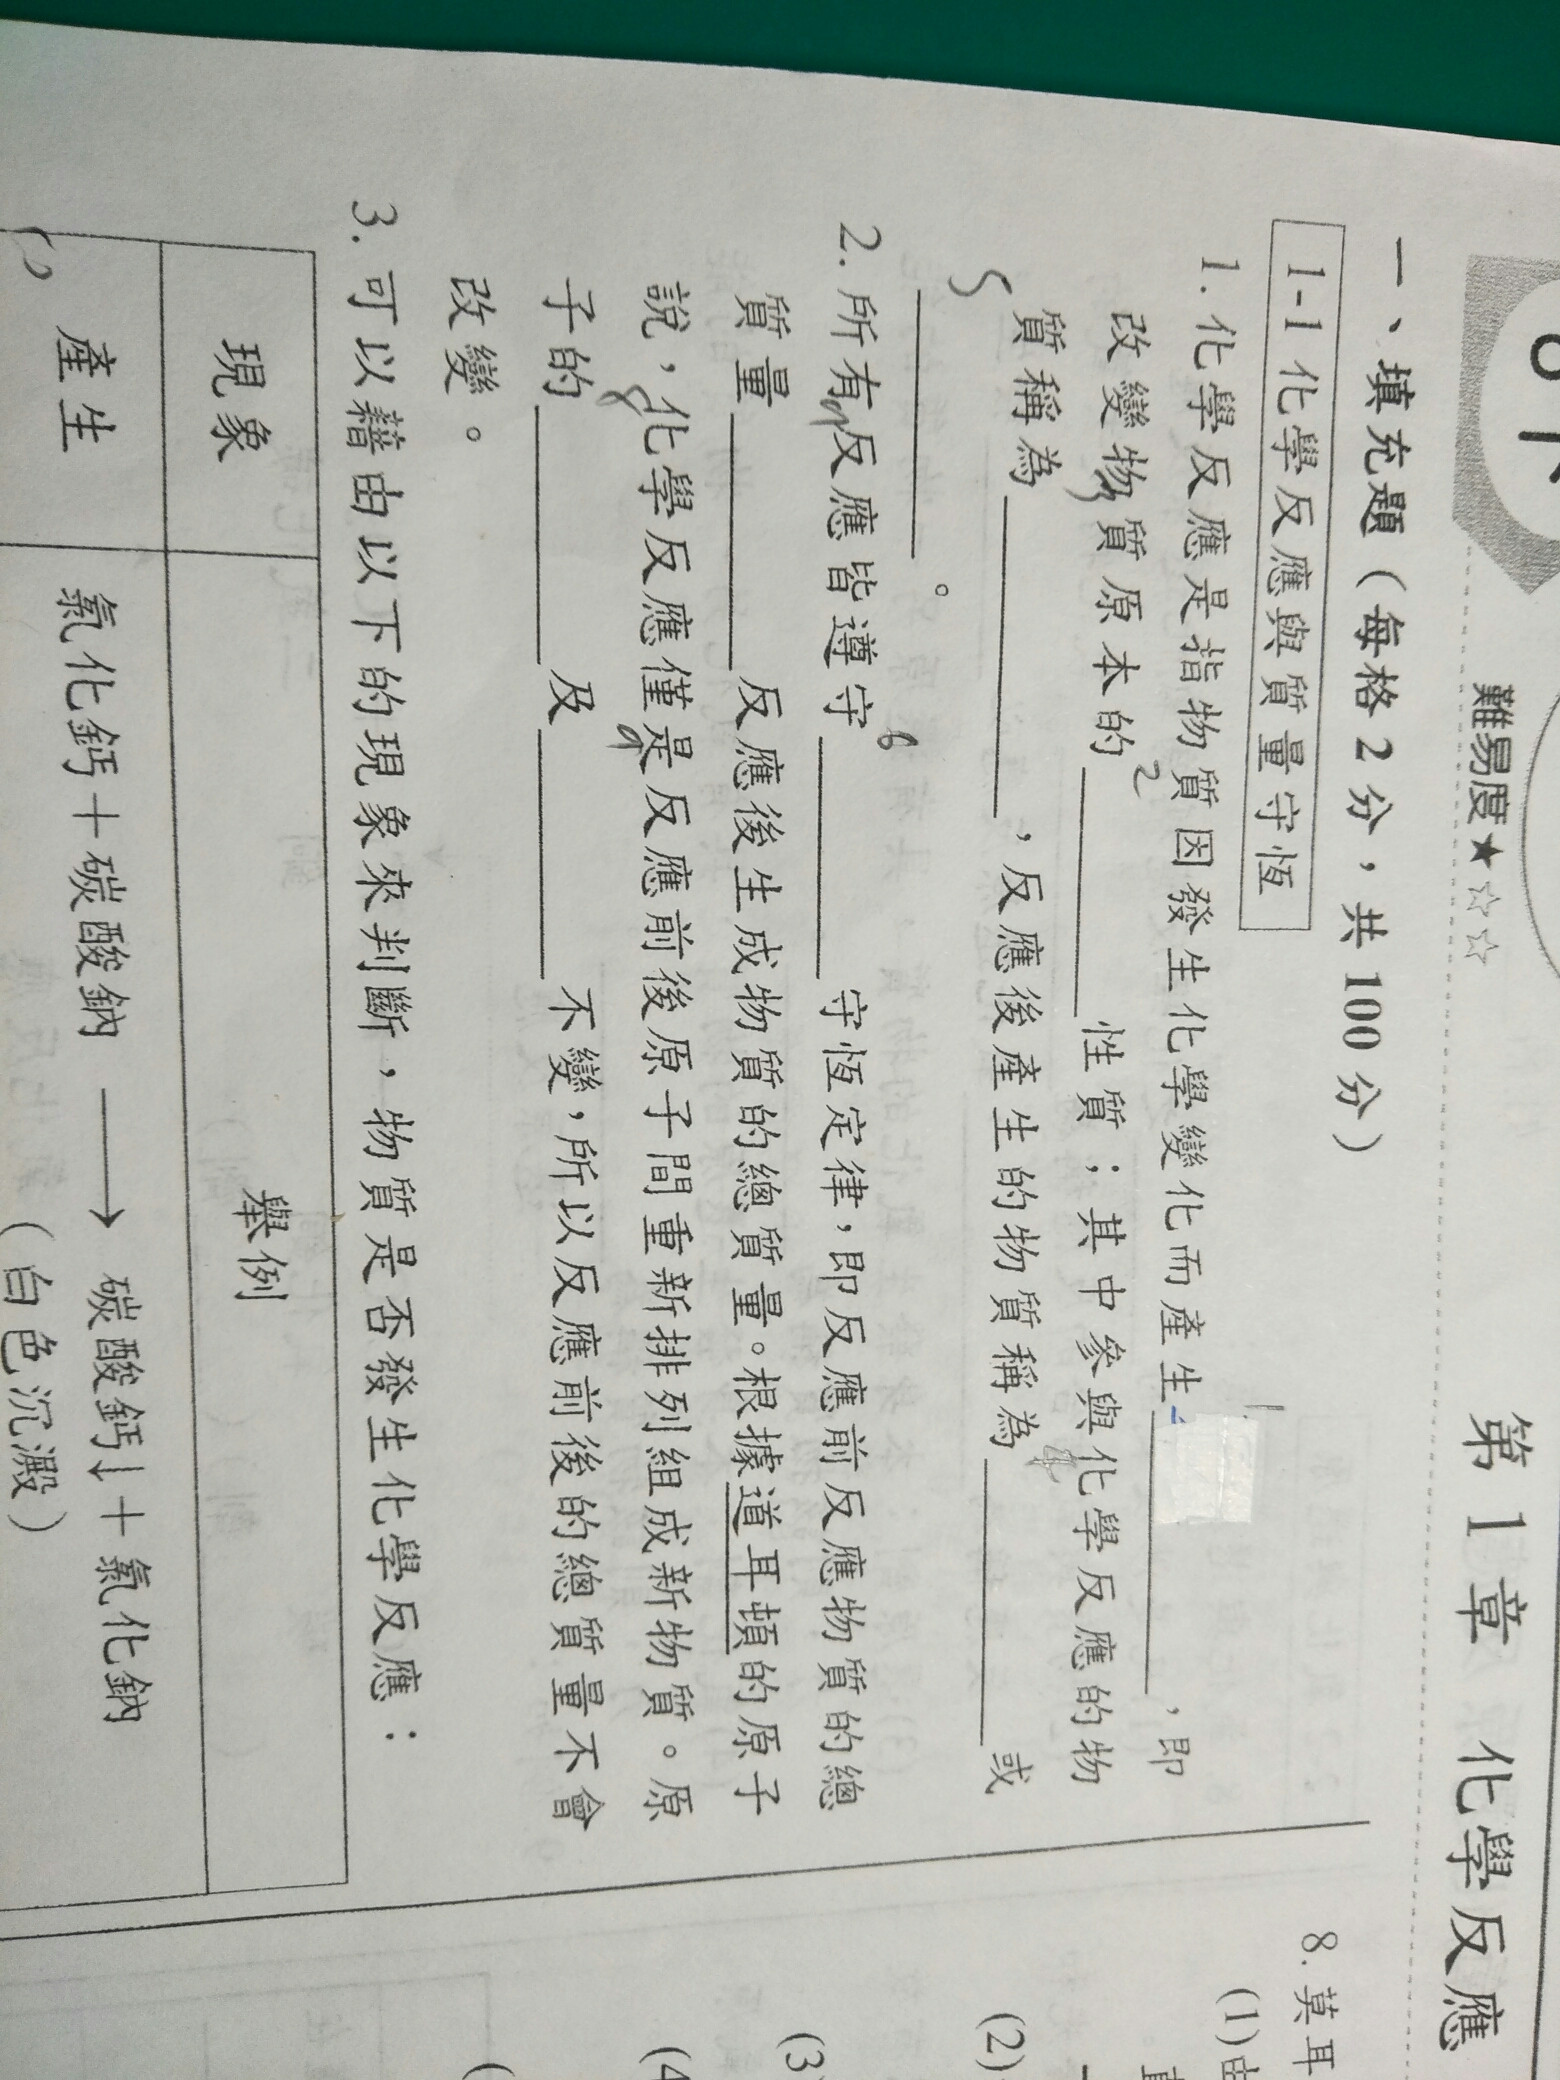 下
難易度★☆☆
第1章 化學反應
一、填充題(每格2分,共100分)
1-1 化學反應與質量守恆
1
1.化學反應是指物質因發生化學變化而產生________,即
2
改變物質原本的________性質;其中參與化學反應的物
3 4
質稱為________,反應後產生的物質稱為________或
5
________。
6
2.所有反應皆遵守________守恆定律,即反應前反應物質的總
質量________反應後生成物質的總質量。根據道耳頓的原子
8
說,化學反應僅是反應前後原子間重新排列組成新物質。原
子的________及________不變,所以反應前後的總質量不會
改變。
3.可以藉由以下的現象來判斷,物質是否發生化學反應:
現象 舉例
產生 氯化鈣+碳酸鈉 → 碳酸鈣↓+氯化鈉
(白色沉澱)
8.莫耳
(1)
(2)
(3)
(4